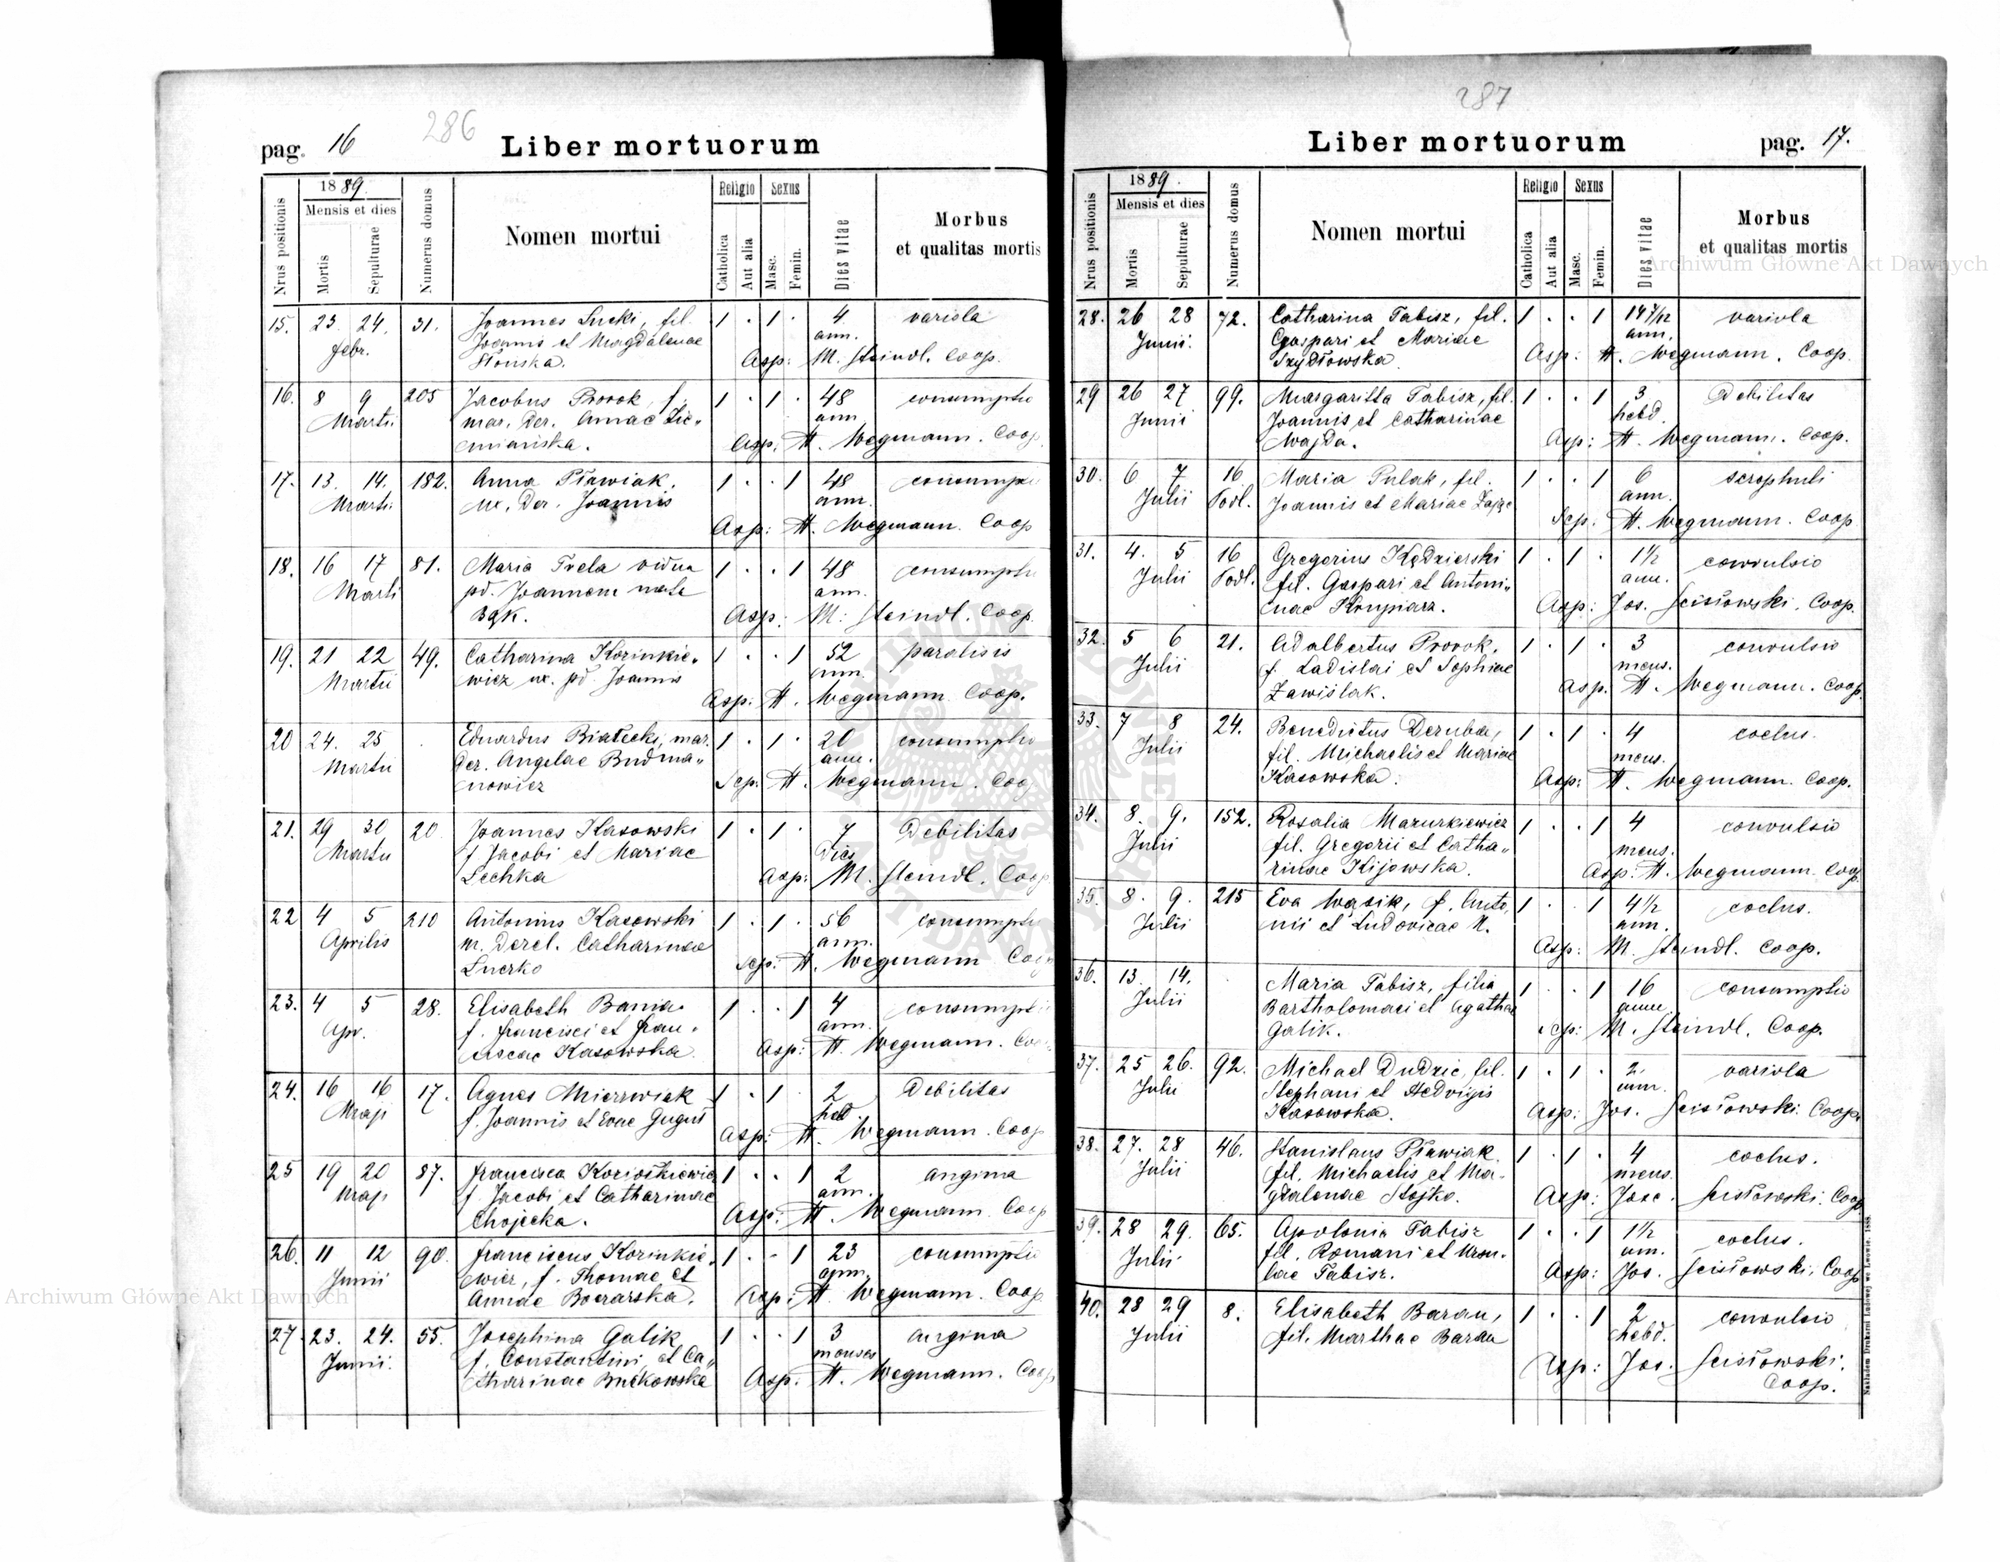 286
pag. 16
Liber mortuorum
Nrus positionis
1889.
Mensis et dies
Mortis
Sepulturae
Numerus domus
Nomen mortui
Religio
Catholica
Aut alia
Sexus
Masc.
Femin.
Dies vitae
Morbus
et qualitas mortis
15. 23. 24. 31. Joannes Lucki, fil. 1 · 1 · 4 variola
Febr. Joannis et Magdalenae ann.
Słonska. Asp: M. Steindl. Coop.
16. 8 9 205 Jacobus Prorok, f. 1 · 1 · 48 consumptio
Martii mar. der. Annae Zie- ann
mianska. Asp: H. Wegmann. Coop.
17. 13. 14. 182. Anna Pławiak, 1 · · 1 48 consumptio
Martii ux. der. Joannis ann.
Asp: H. Wegmann. Coop
18. 16 17 81. Maria Trela vidua 1 · · 1 48 consumptio
Martii pd. Joannem nata ann.
Bąk. Asp: M. Steindl. Coop.
19. 21 22 49. Catharina Kozinkie- 1 · · 1 52 paralisis
Martii wicz ux. pd. Joannis ann.
Asp: H. Wegmann Coop.
20 24. 25 Eduardus Białecki, mar. 1 · 1 · 20 consumptio
Martii der. Angelae Budma- ann.
nowicz Sep: H. Wegmann. Coop
21. 29 30 20 Joannes Kasowski 1 · 1 · 7 Debilitas
Martii f Jacobi et Mariae dies
Lechka Asp: M. Steindl. Coop
22 4 5 210 Antonius Kasowski 1 · 1 · 56 consumptio
Aprilis m. derel. Catharinae ann.
Sep: H. Wegmann Coop
23. 4 5 28. Elisabeth Bania 1 · · 1 4 consumptio
Apr. f. Francisci et Fran- ann.
ciscae Kasowska Asp: H. Wegmann. Coop
24. 16 16 17. Agnes Mierzwiak 1 · 1 · 2 Debilitas
Maji f. Joannis et Evae Guguś hebd.
Asp: H. Wegmann. Coop
25 19 20 87. Francisca Kozioskiewicz 1 · · 1 2 angina
Maji f. Jacobi et Catharinae ann.
Chojecka. Asp: H. Wegmann. Coop
26. 11 12 90. Franciscus Kozinkie- 1 · - 1 23 consumptio
Junii wicz, f. Thomae et ann.
Annae Boczarska. Asp: H. Wegmann. Coop
27 23. 24. 55. Josephina Galik 1 · · 1 3 angina
Junii. f. Constantini, et Ca- menses
tharinae Bukowska Asp: H. Wegmann. Coop
287
Liber mortuorum
pag. 17.
Nrus positionis
1889.
Mensis et dies
Mortis
Sepulturae
Numerus domus
Nomen mortui
Religio
Catholica
Aut alia
Sexus
Masc.
Femin.
Dies vitae
Morbus
et qualitas mortis
28. 26 28 72. Catharina Tabisz, fil. 1 · · 1 14 7/12 variola
Junii. Gaspari et Mariae ann.
Szydłowska Asp: H. Wegmann. Coop.
29 26 27 99. Margaritta Tabisz, fil. 1 · · 1 3 Debilitas
Junii Joannis et Catharinae hebd.
Wajda. Asp: H. Wegmann. Coop.
30. 6 7 16 Maria Pulak, fil. 1 · · 1 6 scrophuli
Julii Podl. Joannis et Mariae Zając ann.
Sep: H. Wegmann. Coop
31. 4. 5 16 Gregorius Kędzierski 1 · 1 · 1 1/2 convulsio
Julii Podl. fil. Gaspari et Antoni- ann.
nae Konpiarz. Asp: Jos. Scisłowski. Coop.
32. 5 6 21. Adalbertus Prorok, 1 · 1 · 3 convulsio
Julii f. Ladislai et Sophiae mens.
Zawiślak. Asp. H. Wegmann. Coop.
33. 7 8 24. Benedictus Deruba, 1 · 1 · 4 coelus.
Julii fil. Michaelis et Mariae mens.
Kasowska. Asp: H. Wegmann. Coop.
34. 8. 9. 152. Rosalia Mazurkiewicz 1 · · 1 4 convulsio
Julii fil. Gregorii et Catha- mens.
rinae Kijowska. Asp: H. Wegmann. Coop.
35. 8. 9. 215 Eva Wąsik, f. Anto- 1 · · 1 4 1/2 coelus.
Julii nii et Ludovicae N. ann.
Asp: M. Steindl. Coop.
36. 13. 14. Maria Tabisz, filia 1 · · 1 16 consumptio
Julii Bartholomaei et Agathae ann.
Galik. Sep: M. Steindl. Coop.
37. 25 26. 92. Michael Dudzic, fil. 1 · 1 · 2 variola
Julii Stephani et Hedvigis ann.
Kasowska. Asp: Jos. Scisłowski. Coop.
38. 27. 28 46. Stanislaus Pławiak 1 · 1 · 4 coelus.
Julii fil. Michaelis et Ma- mens.
gdalenae Stojko. Asp: Jos. Scisłowski. Coop
39. 28 29. 65. Apolonia Tabisz 1 · · 1 1 1/2 coelus.
Julii fil. Romani et Ursu- ann.
lae Tabisz. Asp: Jos. Scisłowski. Coop
40. 28 29 8. Elisabeth Baran, 1 · · 1 2 convulsio
Julii fil. Marthae Baran hebd.
Asp: Jos. Scisłowski.
Coop.
Nakładem Drukarni Ludowej we Lwowie. 1888.
Archiwum Główne Akt Dawnych
Archiwum Główne Akt Dawnych